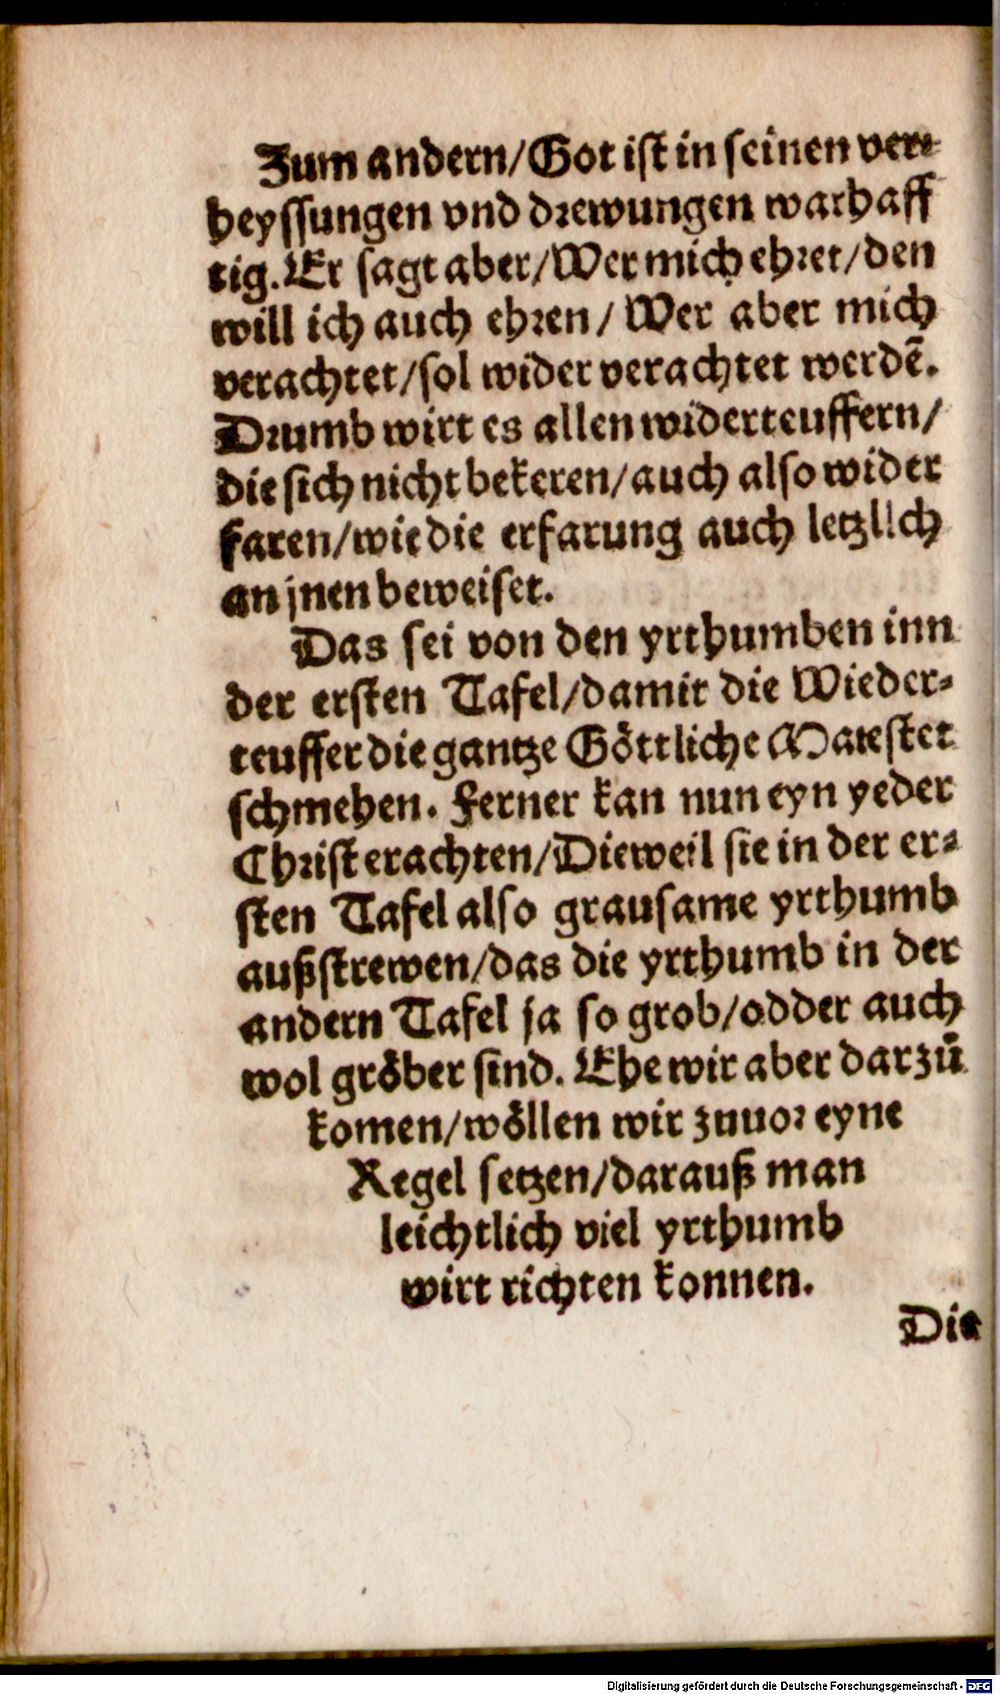 Zum andern/Got ist in seinen ver⸗
heyssungen vnd drewungen warhaff
tig. Er sagt aber/Wer mich ehret/den
will ich auch ehren/ Wer aber mich
verachtet/sol wider verachtet werdē.
Drumb wirt es allen widerteuffern/
die sich nicht bekeren/auch also wider
faren/wie die erfarung auch letzlich
an jnen beweiset.
Das sei von den yrthumben inn
der ersten Tafel/damit die Wieder⸗
teuffer die gantze Göttliche Maiestet
schmehen. Ferner kan nun eyn yeder
Christ erachten/Dieweil sie in der er⸗
sten Tafel also grausame yrthumb
außstrewen/das die yrthumb in der
andern Tafel ja so grob/odder auch
wol gröber sind. Ehe wir aber darzů
komen/wöllen wir zuuor eyne
Regel setzen/darauß man
leichtlich viel yrthumb
wirt richten konnen.
Die
Digitalisierung gefördert durch die Deutsche Forschungsgemeinschaft - DFG